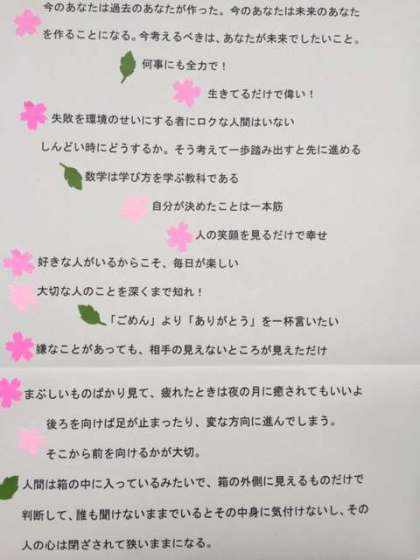 今のあなたは過去のあなたが作った。今のあなたは未来のあなた
を作ることになる。今考えるべきは、あなたが未来でしたいこと。
何事にも全力で！
生きてるだけで偉い！
失敗を環境のせいにする者にロクな人間はいない
しんどい時にどうするか。そう考えて一歩踏み出すと先に進める
数学は学び方を学ぶ教科である
自分が決めたことは一本筋
人の笑顔を見るだけで幸せ
好きな人がいるからこそ、毎日が楽しい
大切な人のことを深くまで知れ！
「ごめん」より「ありがとう」を一杯言いたい
嫌なことがあっても、相手の見えないところが見えただけ
まぶしいものばかり見て、疲れたときは夜の月に癒されてもいいよ
後ろを向けば足が止まったり、変な方向に進んでしまう。
そこから前を向けるかが大切。
人間は箱の中に入っているみたいで、箱の外側に見えるものだけで
判断して、誰も開けないままでいるとその中身に気付けないし、その
人の心は閉ざされて狭いままになる。